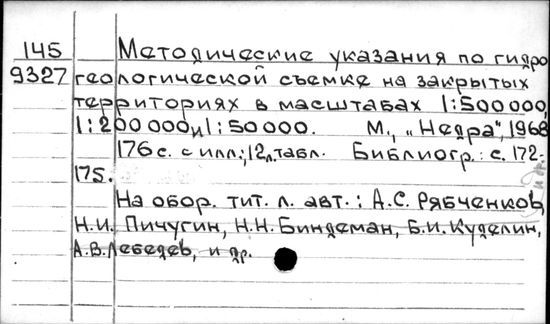 145 Методические указания по гидро
9327 геологической съемке на закрытых
территориях в масштабах 1:500 000,
1:200 000 и 1:50 000. М., „Недра", 1968
176 с. с илл.; 12 л. табл. Библиогр.: с. 172-
175.
На обор. тит. л. авт.: А.С. Рябченков,
Н.И. Пичугин, Н.Н. Биндеман, Б.И. Куделин,
А.В. Лебедев, и др.